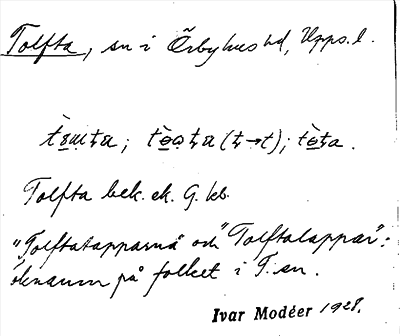 Tolfta, sn i Örbyhus hd, Upps. l.
Tolfta bek. ek. G. kb.
"Tolftatapparnä" och "Tolftalappar":
öknamn på folket i T. sn.
Ivar Modéer 1928.